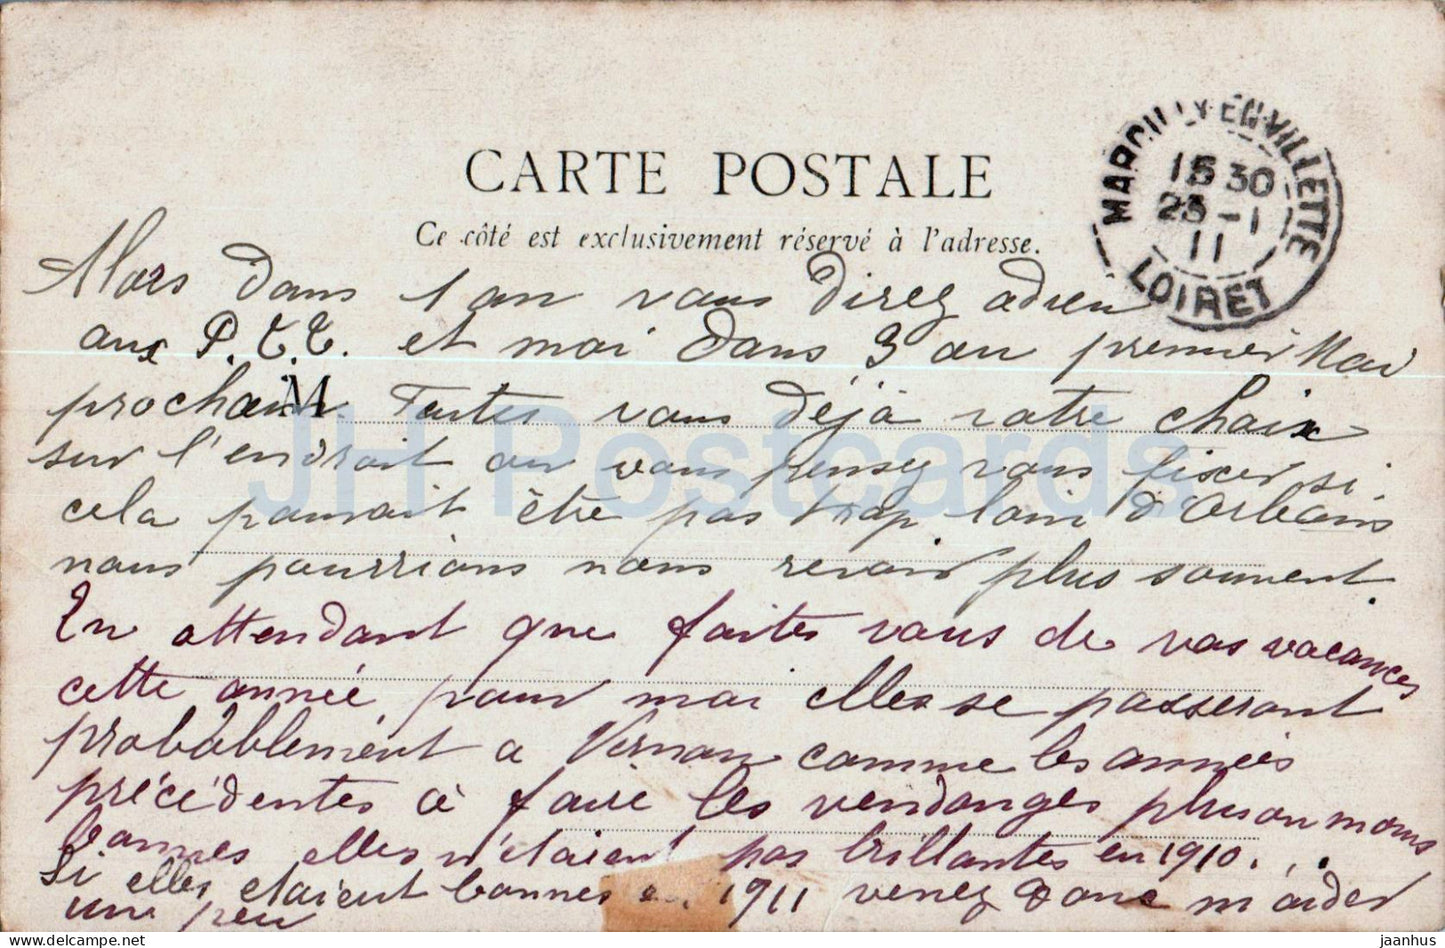 CARTE POSTALE
Ce côté est exclusivement réservé à l'adresse.
MARCILLY-EN-VILLETTE
15 30
23 - 1
11
LOIRET
Alors dans 1 an vous direz adieu
aux P.T.T. et moi dans 3 au premier Mai
prochain. Faites vous déjà votre choix
M
sur l'endroit ou vous pensez vous fixer, si
cela pouvait être pas trop loin d'Orléans
nous pourrions nous revoir plus souvent.
En attendant que faites vous de vos vacances
cette année, pour moi elles se passeront
probablement à Vernou comme les années
précédentes à faire les vendanges plus ou moins
bonnes elles n'étaient pas brillantes en 1910.
Si elles étaient bonnes en 1911 venez donc m'aider
une peu
JH Postcards
jaanhus — delcampe.net